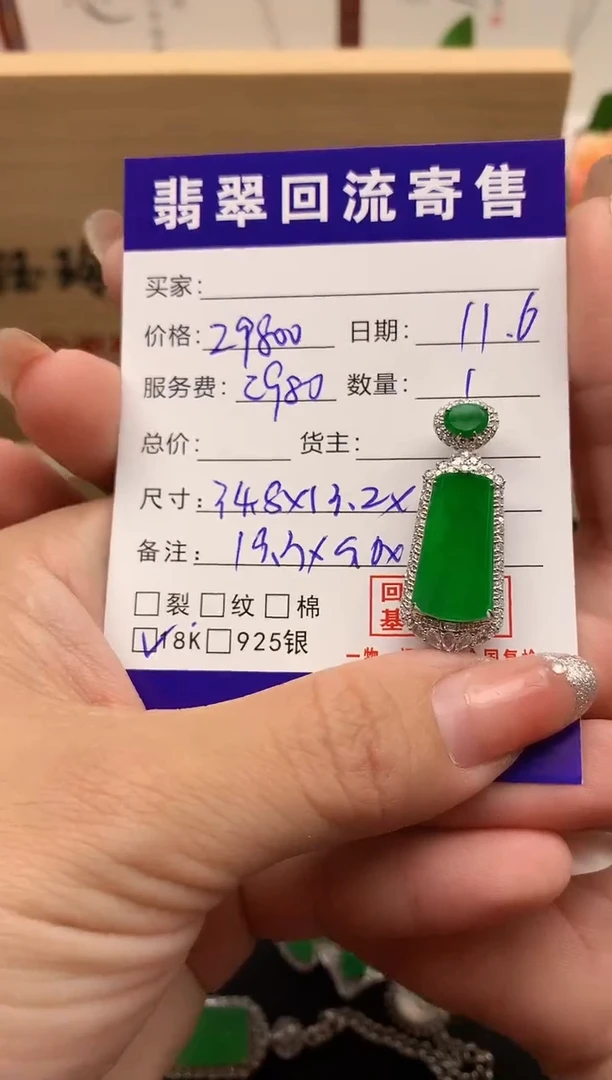 翡翠回流寄售
买家:
价格: 29800 日期: 11.6
服务费: 2980 数量: 1
总价: 货主:
尺寸: 34.8x13.2x
备注:
□裂 □纹 □棉
18K □925银
回
基